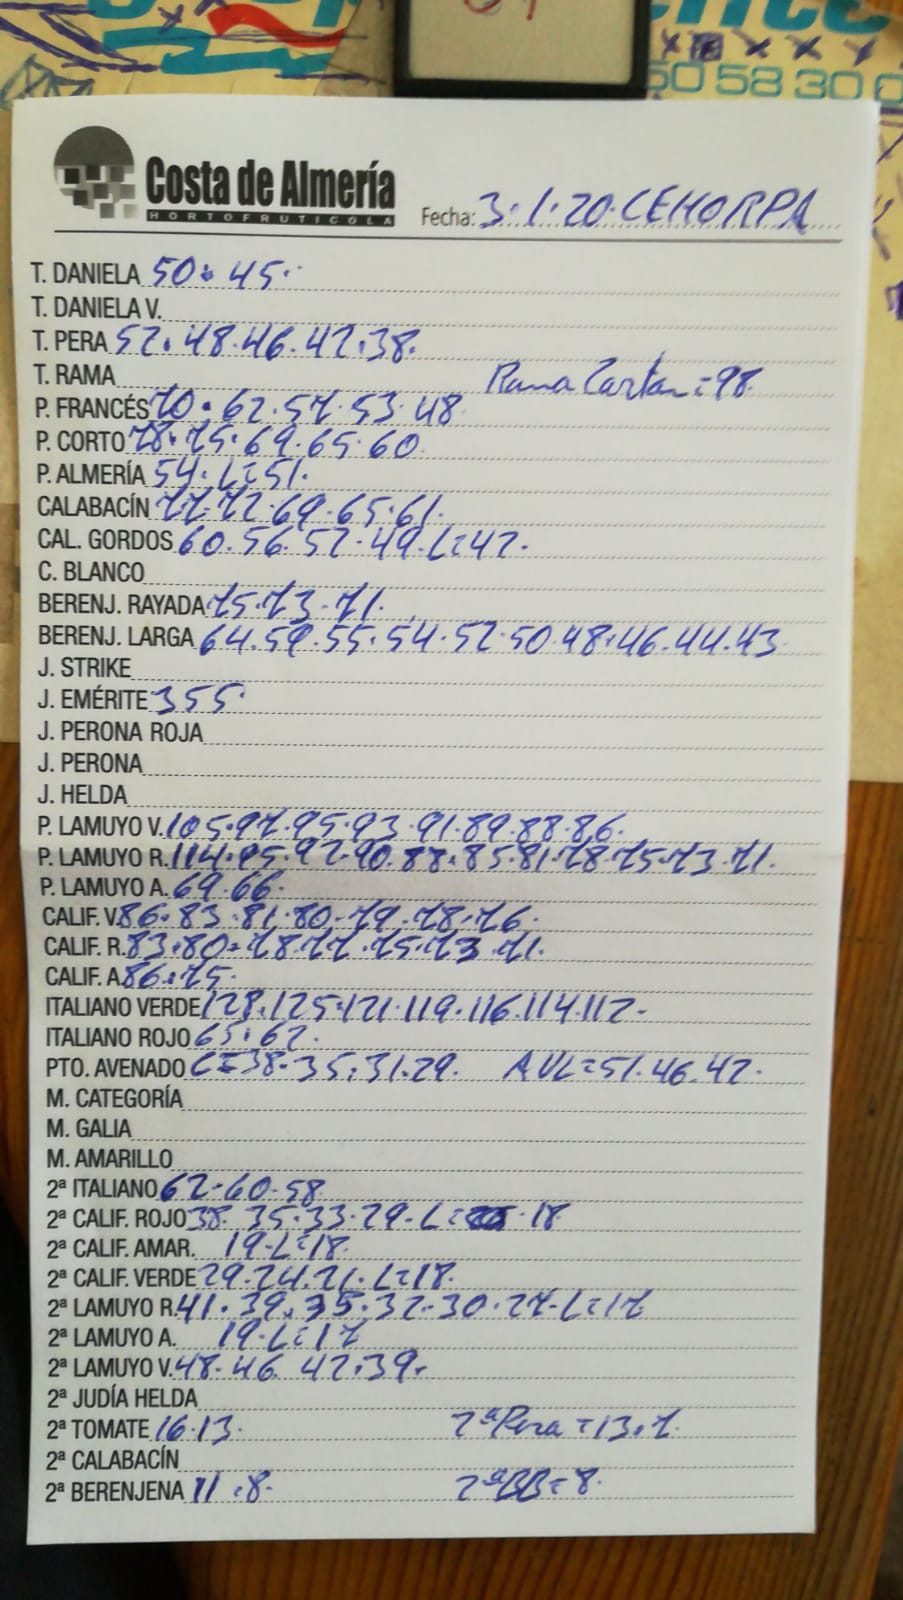 50 58 30 0
Costa de Almería
HORTOFRUTICOLA
Fecha: 3.1.20.CEHORPA
T. DANIELA 50.45.
T. DANIELA V.
T. PERA 52.48.46.42.38.
T. RAMA Rama Cartón=98
P. FRANCÉS 70.62.57.53.48
P. CORTO 78.75.69.65.60
P. ALMERÍA 54.L=51.
CALABACÍN 77.72.69.65.61.
CAL. GORDOS 60.56.52.49.L=42.
C. BLANCO
BERENJ. RAYADA 75.73.71.
BERENJ. LARGA 64.59.55.54.52.50.48.46.44.43
J. STRIKE
J. EMÉRITE 355
J. PERONA ROJA
J. PERONA
J. HELDA
P. LAMUYO V. 105.97.95.93.91.89.88.86.
P. LAMUYO R. 114.95.92.90.88.85.81.78.75.73.71.
P. LAMUYO A. 69.66.
CALIF. V. 86.83.81.80.79.78.76.
CALIF. R. 83.80.78.77.75.73.71.
CALIF. A. 86.75.
ITALIANO VERDE 128.125.121.119.116.114.112.
ITALIANO ROJO 65.62.
PTO. AVENADO C=38.35.31.29. AVL=51.46.42.
M. CATEGORÍA
M. GALIA
M. AMARILLO
2ª ITALIANO 62.60.58
2ª CALIF. ROJO 38.35.33.29.L= 18
2ª CALIF. AMAR. 19.L=18.
2ª CALIF. VERDE 29.24.21.L=18.
2ª LAMUYO R. 41.39.35.32.30.27.L=17
2ª LAMUYO A. 19.L=17
2ª LAMUYO V. 48.46.42.39.
2ª JUDÍA HELDA
2ª TOMATE 16.13. 2ª Pera=13.7.
2ª CALABACÍN
2ª BERENJENA 11.8. 2ªBB=8.